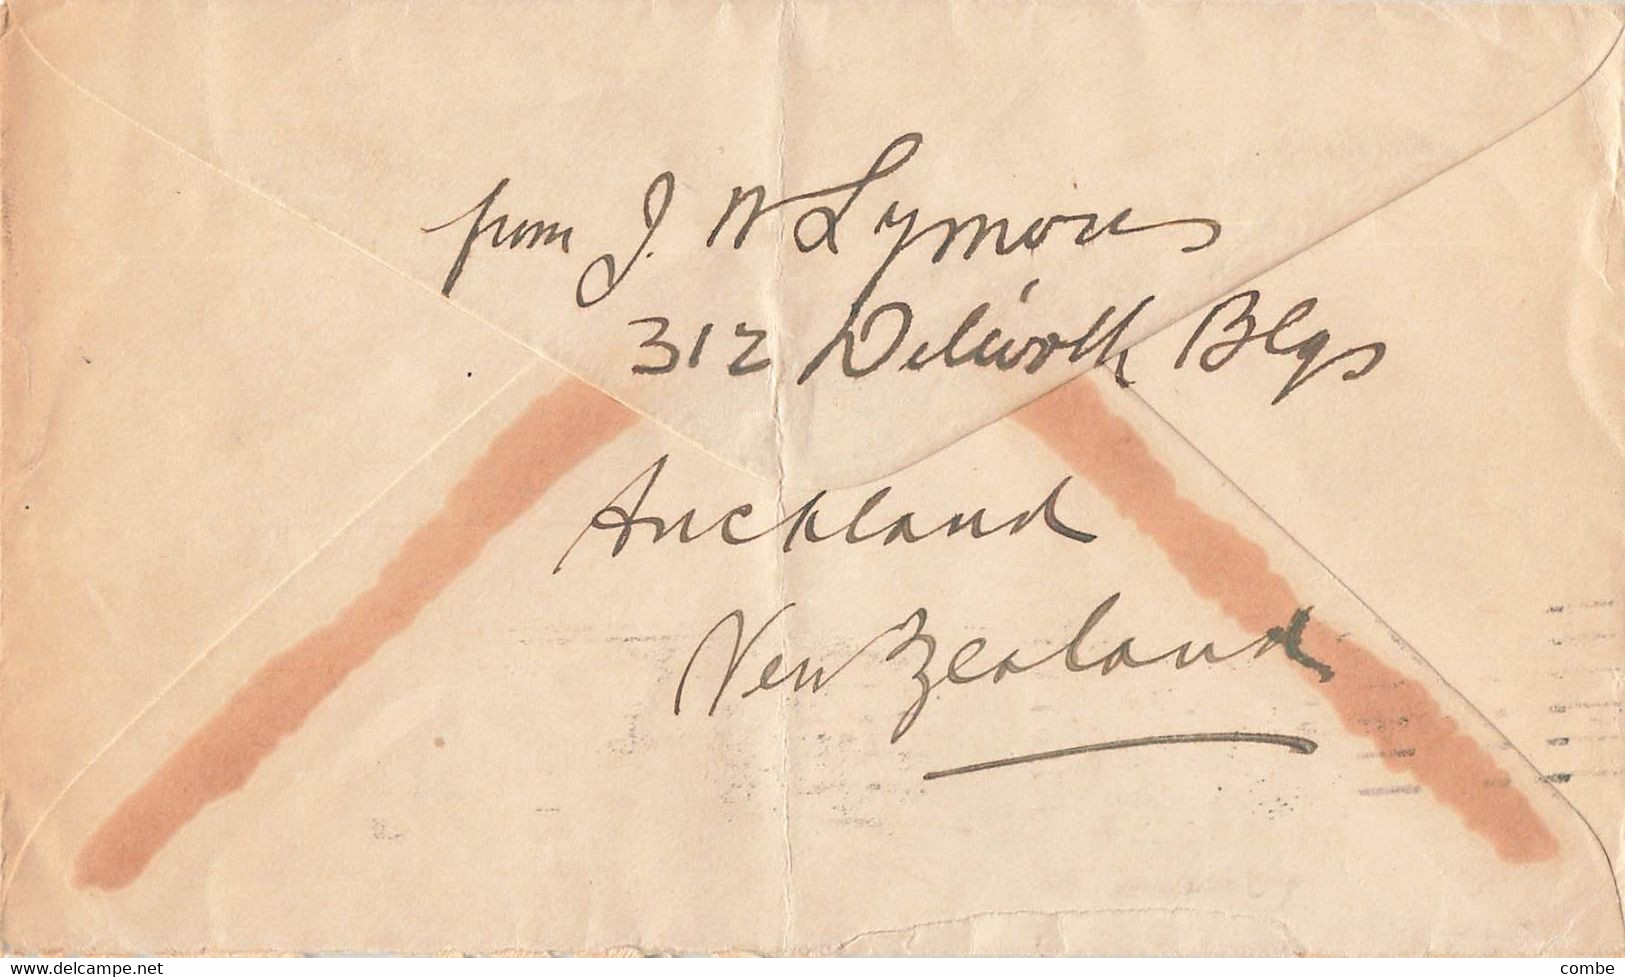 from J. W Lymons
312 Dilworth Blgs
Auckland
New Zealand
www.delcampe.net
combe